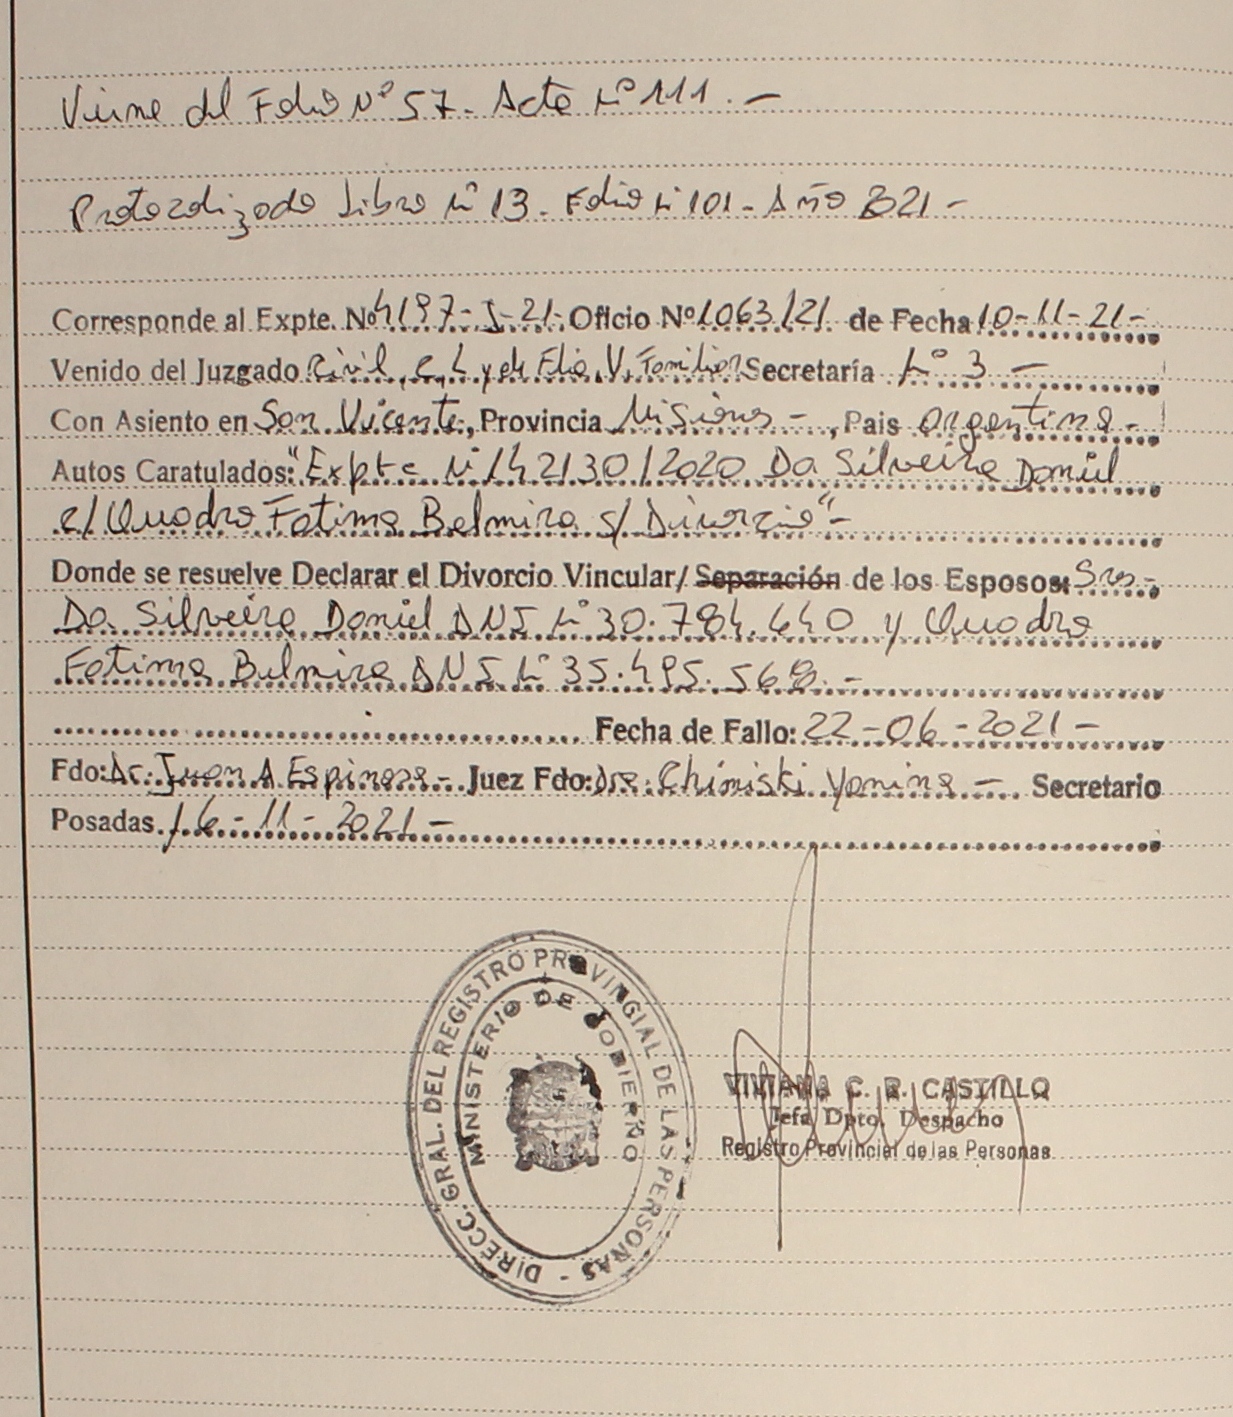 Viene del Folio Nº 57 - Acta Nº 111. -
Protocolizado Libro Nº 13 - Folio Nº 101 - Año 2021 -
Corresponde al Expte. Nº 4197-I-21- Oficio Nº 1063/21 de Fecha 10-11-21-
Venido del Juzgado Civil, C, L y de Flia, V. Familiar Secretaría Nº 3 -
Con Asiento en San Vicente, Provincia Misiones -, Pais Argentina -
Autos Caratulados: "Expte Nº 142130/2020 Da Silveira Daniel
c/ Quadro Fatima Belmira s/ Divorcio" -
Donde se resuelve Declarar el Divorcio Vincular/ Separación de los Esposos: Sres -
Da Silveira Daniel DNI Nº 30.784.640 y Quadro
Fatima Belmira DNI Nº 35.495.568. -
Fecha de Fallo: 22-06-2021 -
Fdo: Dr. Juan A. Espinoza - Juez Fdo: Dra. Chimiski Yanina - Secretario
Posadas 16-11-2021 -
DIRECC. GRAL. DEL REGISTRO PROVINCIAL DE LAS PERSONAS -
MINISTERIO DE GOBIERNO
VIVIANA C. R. CASTILLO
Jefa Dpto. Despacho
Registro Provincial de las Personas